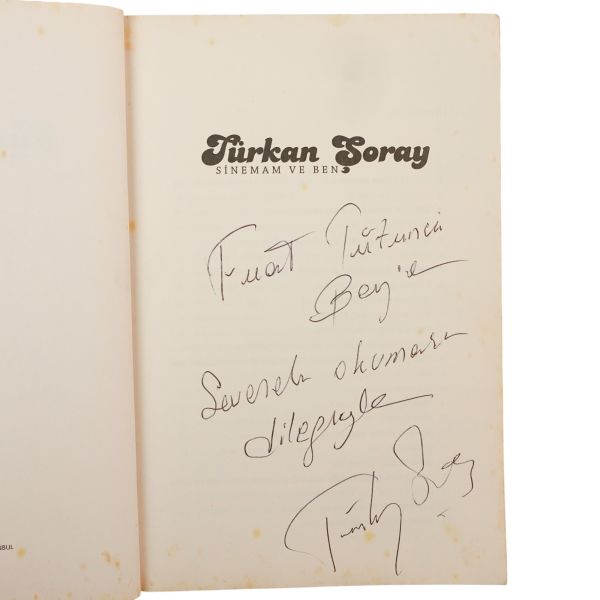 Türkan Şoray
SİNEMAM VE BEN
Fuat Tüzüncü
Bey'e
Severek okuması
dileğiyle
BUL